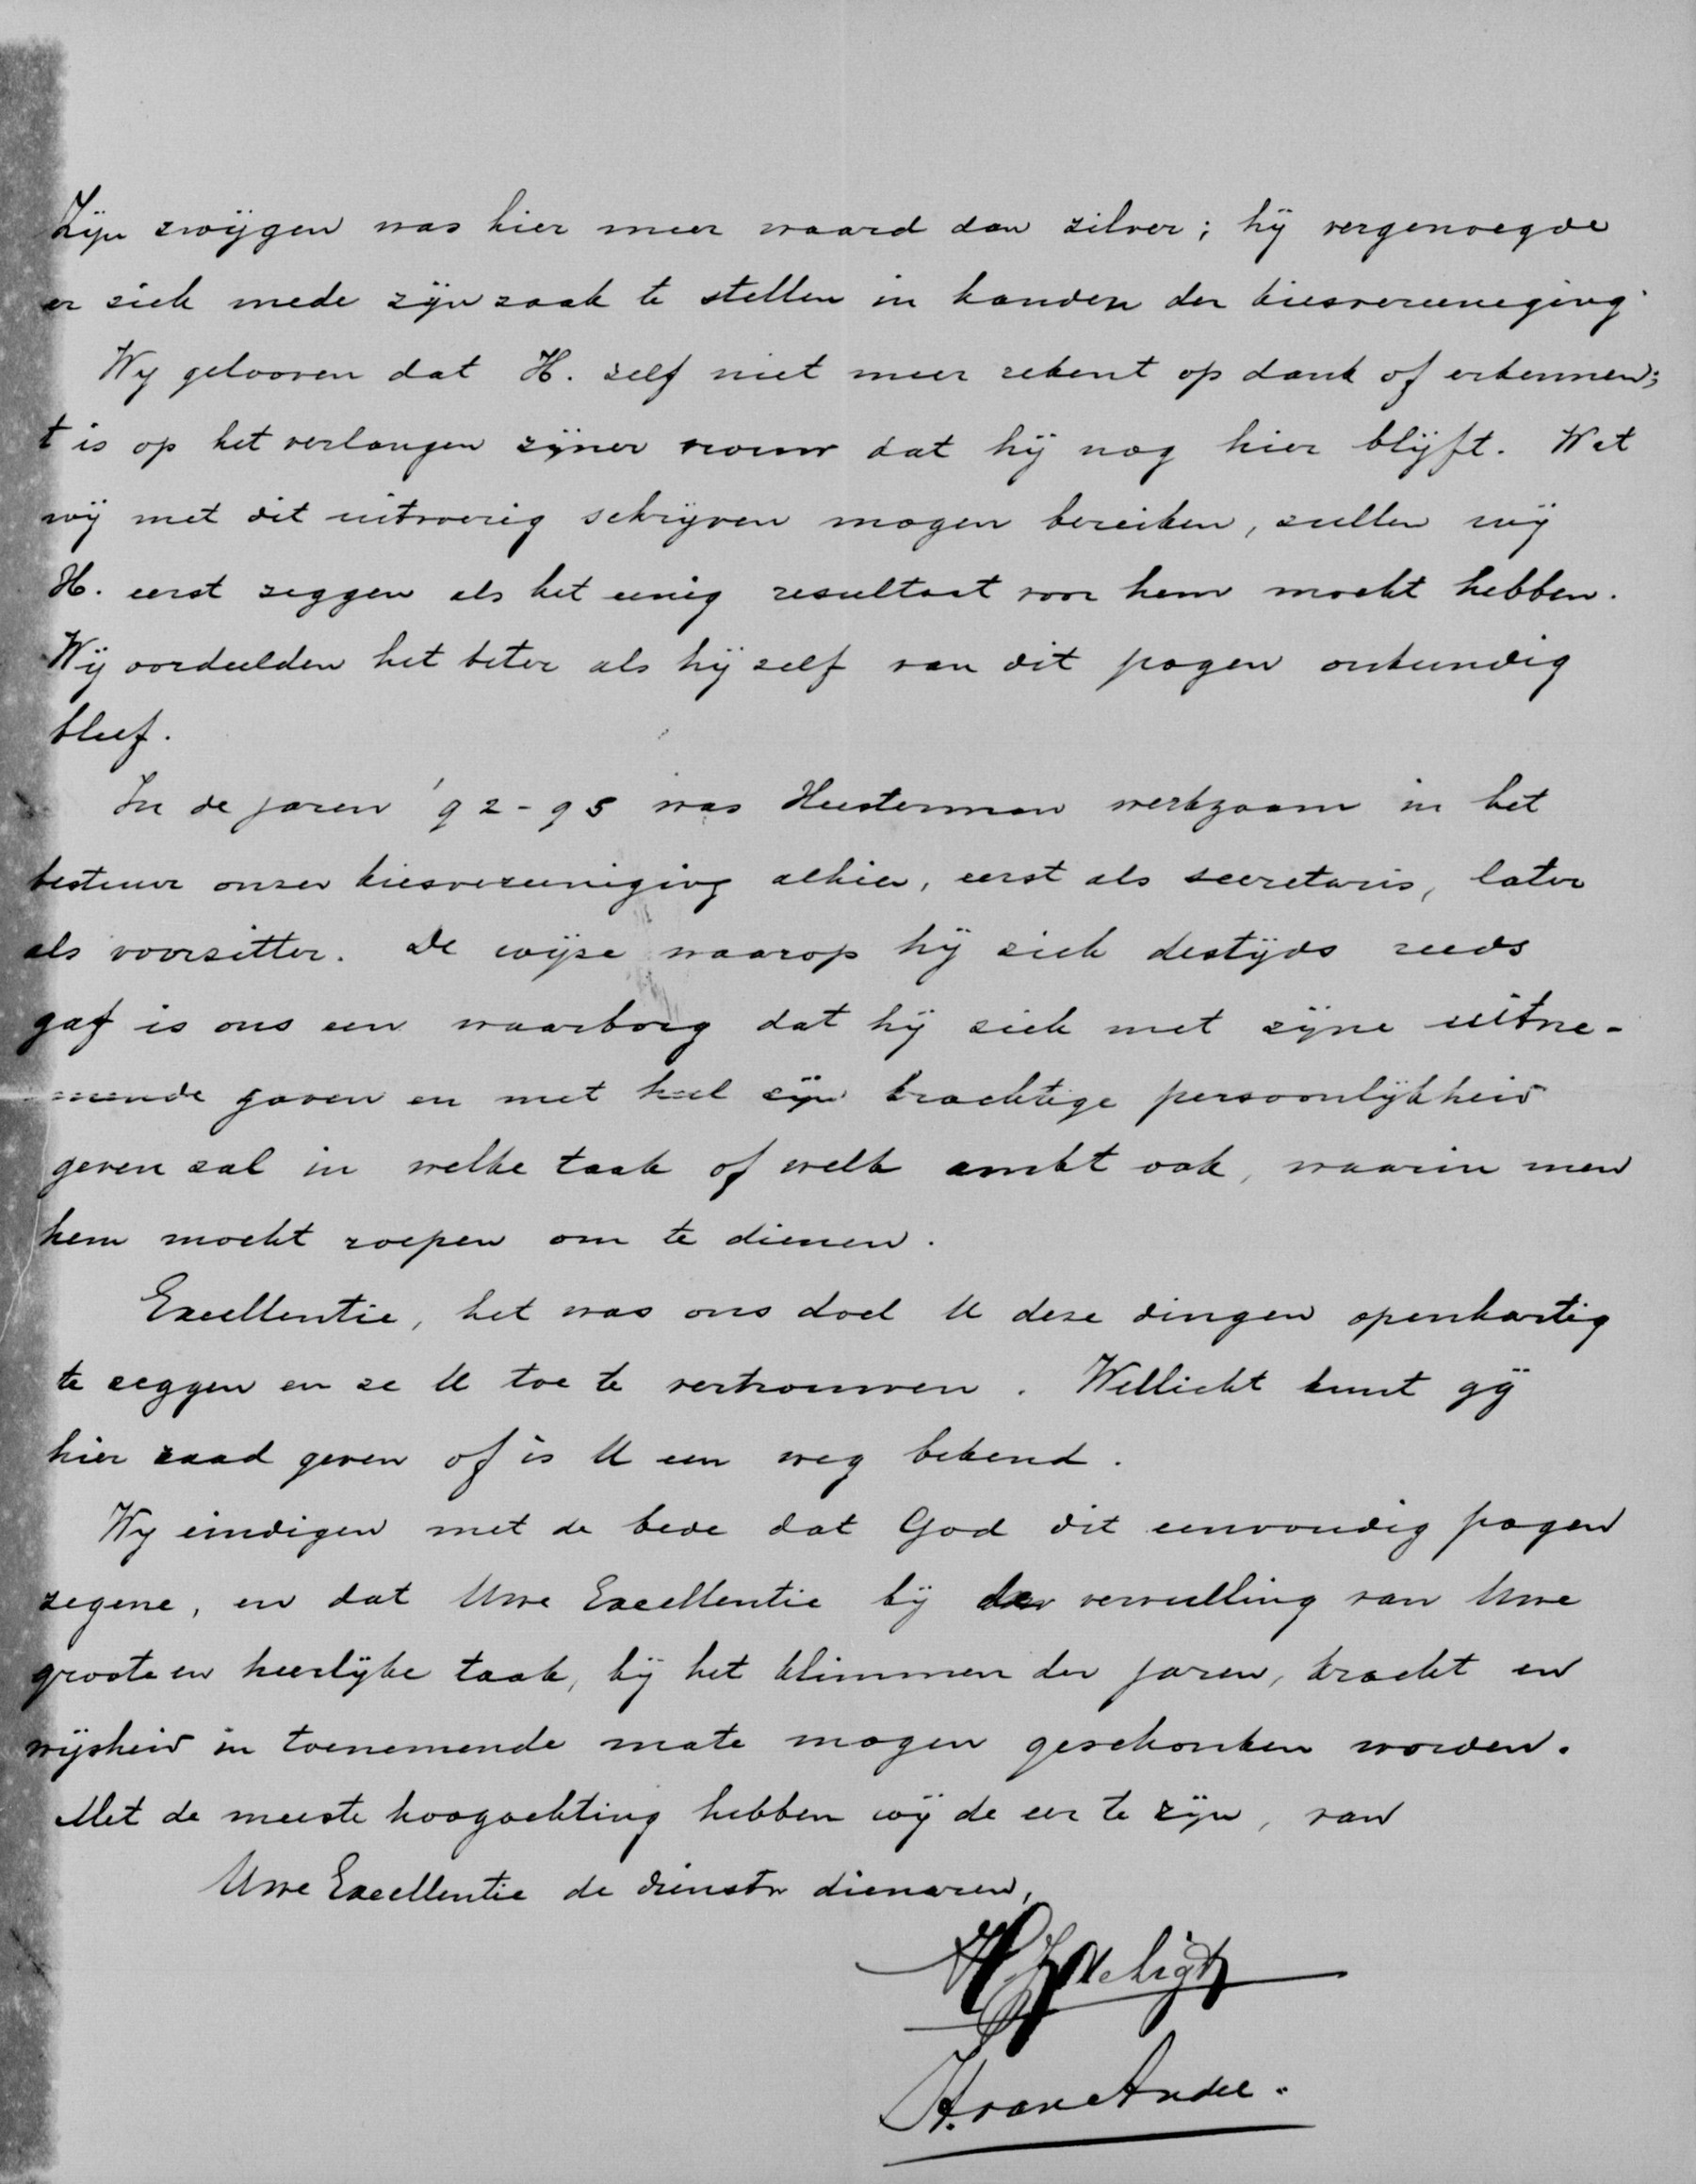 Zijn zwijgen was hier meer waard dan zilver; hij vergenoegde
er zich mede zijn zaak te stellen in handen der kiesvereeniging.
Wij gelooven dat H. zelf niet meer rekent op dank of erkennen;
t is op het verlangen zijner vrouw dat hij nog hier blijft. Wat
wij met dit uitvoerig schrijven mogen bereiken, zullen wij
H. eerst zeggen als het eenig resultaat voor hem mocht hebben.
Wij oordeelden het beter als hij zelf van dit pogen onkundig
bleef.
In de jaren '92-95 was Heusterman werkzaam in het
bestuur onzer kiesvereeniging alhier, eerst als secretaris, later
als voorzitter. De wijze waarop hij zich destijds reeds
gaf is ons een waarborg dat hij zich met zijne uitne-
mende gaven en met heel zijn krachtige persoonlijkheid
geven zal in welke taak of welk ambt ook, waarin men
hem mocht roepen om te dienen.
Excellentie, het was ons doel U deze dingen openhartig
te zeggen en ze U toe te vertrouwen. Wellicht kunt gij
hier raad geven of is U een weg bekend.
Wij eindigen met de bede dat God dit eenvoudig pogen
zegene, en dat Uwe Excellentie bij de vervulling van Uwe
groote en heerlijke taak, bij het klimmen der jaren, kracht en
wijsheid in toenemende mate mogen geschonken worden.
Met de meeste hoogachting hebben wij de eer te zijn, van
Uwe Excellentie de dienstv dienaren,
H. van Andel.